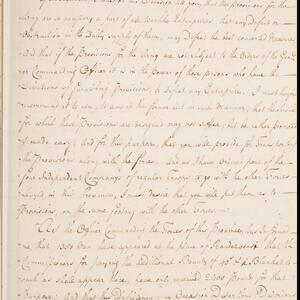 you, that the provisions for them
along on so weighty a part of all Warlike Enterprizes, that any Defect or
Obstruction in the Daily Supply of them, may defeat the best concerted Measures,
And that if the Provisions for the Army are not subject to the Orders of the General
or Commanding Officer it is in the power of those persons who have the
Directions of furnishing Provisions, to defeat any Enterprize. I must therefore
recommend it to you, to amend the former act in such Manner, that the Service
for which these Provisions are designed may not suffer, but be rather promoted
& made easy; And for this purpose, that you will provide for Transporting
the Provisions along with the forces. And as I have ordered part of the
four Independent Companys of regular troops to go with the other Forces
employed in this Province, I must desire that you will put them, as to
Provisions, on the same footing with the other Forces.
As the Officer Commanding the Forces of this Province has Informed
me, that 1350 Men have appeared at the place of Rendezvous & that the
Commissioners for paying the additional Bounty of 40/ & a Blanket to
such as shall appear there, have only received 2300 Pounds for that
purpose: And that this Deficiency may Occasion Disgust or Divisions